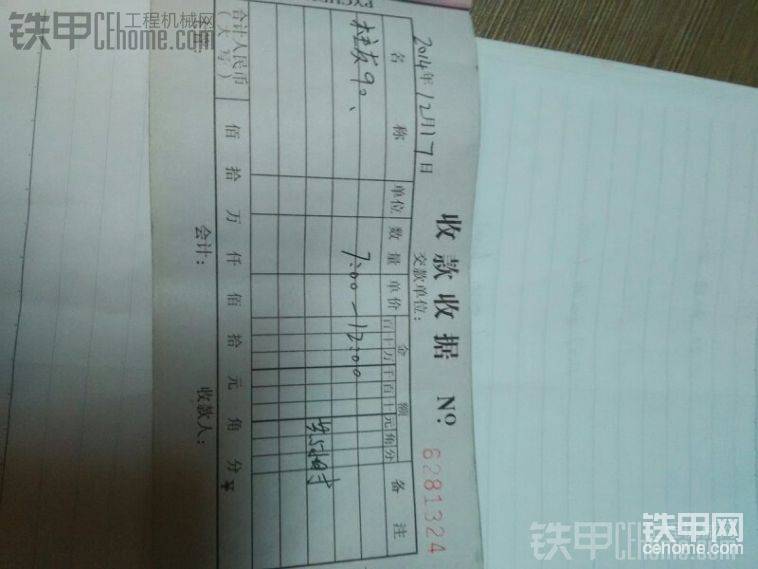 铁甲工程机械网
CEhome.com
收款收据 №
6281324
2014年12月17日
交款单位：
名称 单位 数量 单价 金额 备注
百十万千百十元角分
90、
7:00—12:00
共5小时
合计人民币
（大写）
佰 拾 万 仟 佰 拾 元 角 分 ¥
会计： 收款人：
铁甲CEhome.com
铁甲网
cehome.com